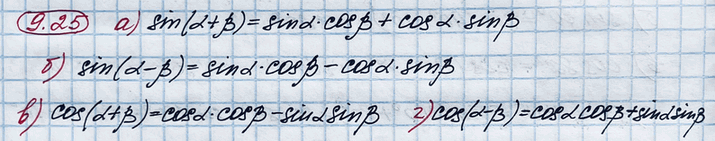 9.25 а) sin(α+β)=sinα·cosβ + cosα·sinβ
б) sin(α-β)=sinα·cosβ - cosα·sinβ
в) cos(α+β)=cosα·cosβ-sinα sinβ г) cos(α-β)=cosα cosβ+sinα sinβ